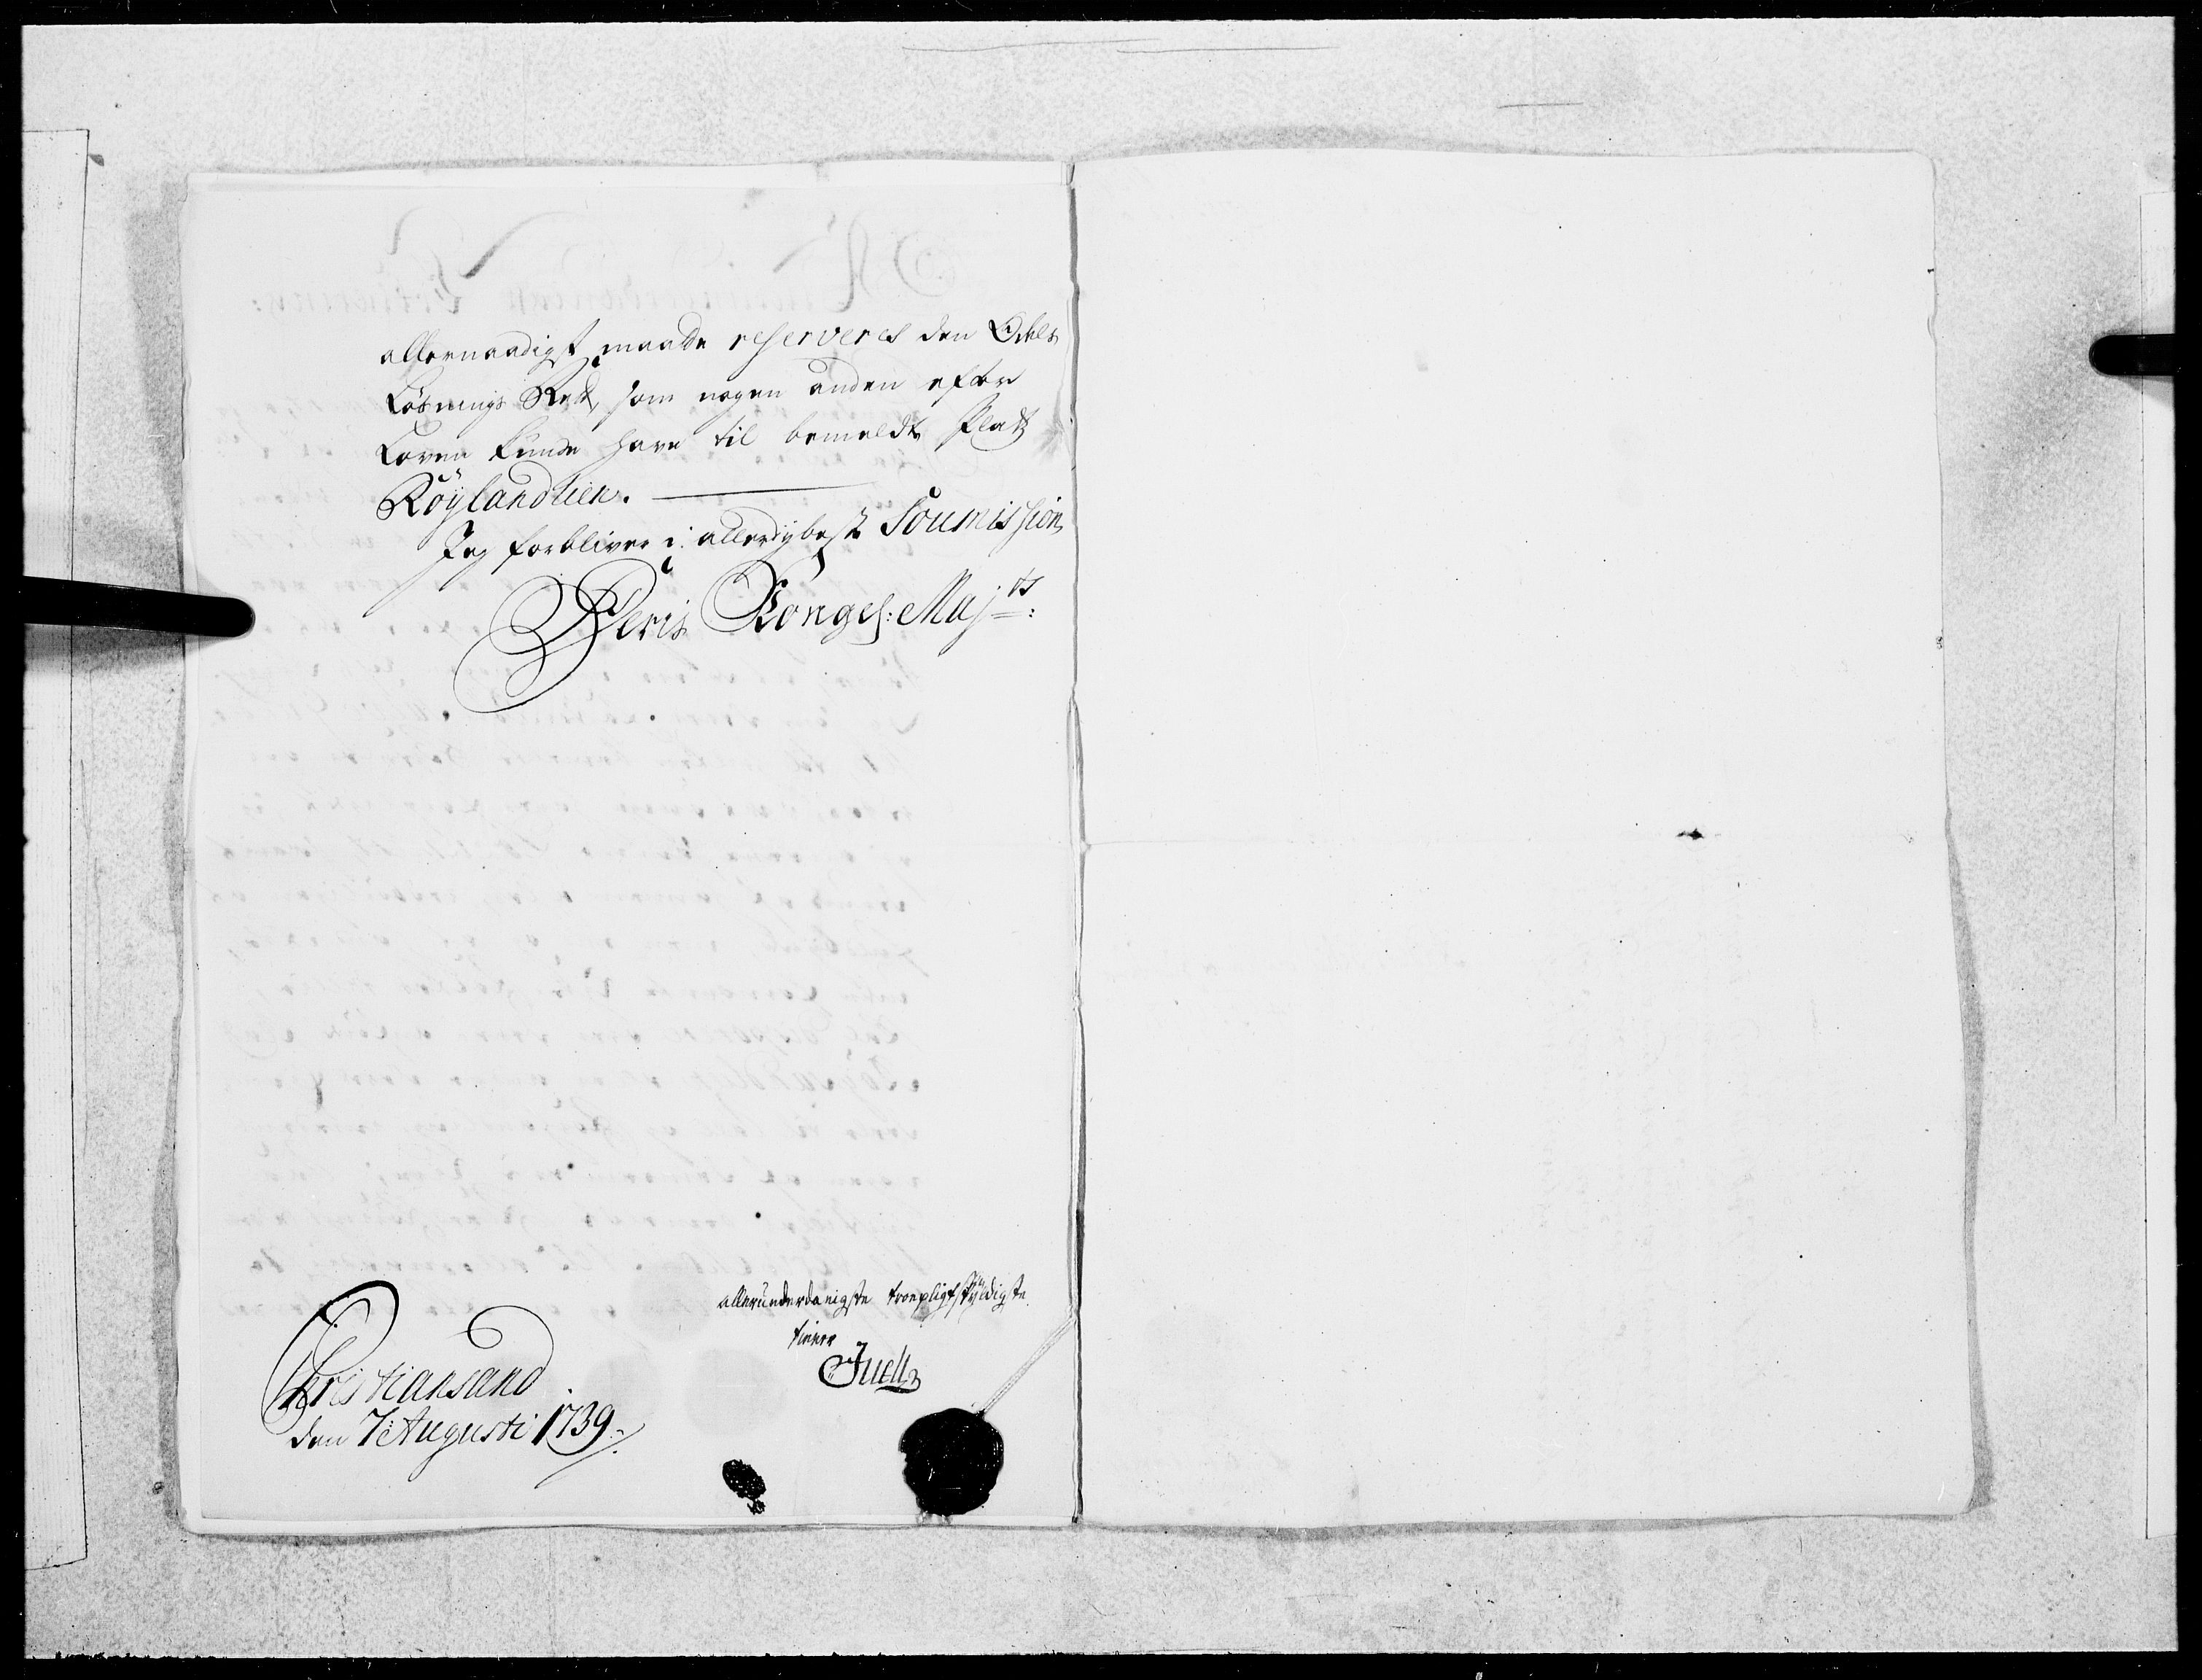 allernaadigst maatte reserveres den Odels
Løsnings Rett, som nogen anden efter
Loven kunde have til bemeldte Platz
Röylandlien.
Jeg forbliver i allerdybeste Soumission
Deris Kongel: Maj<sup>ts</sup>:
allerunderdanigste troepligtskyldigste
tienere
Juell
Christiansand
den 7 Augusti 1739.